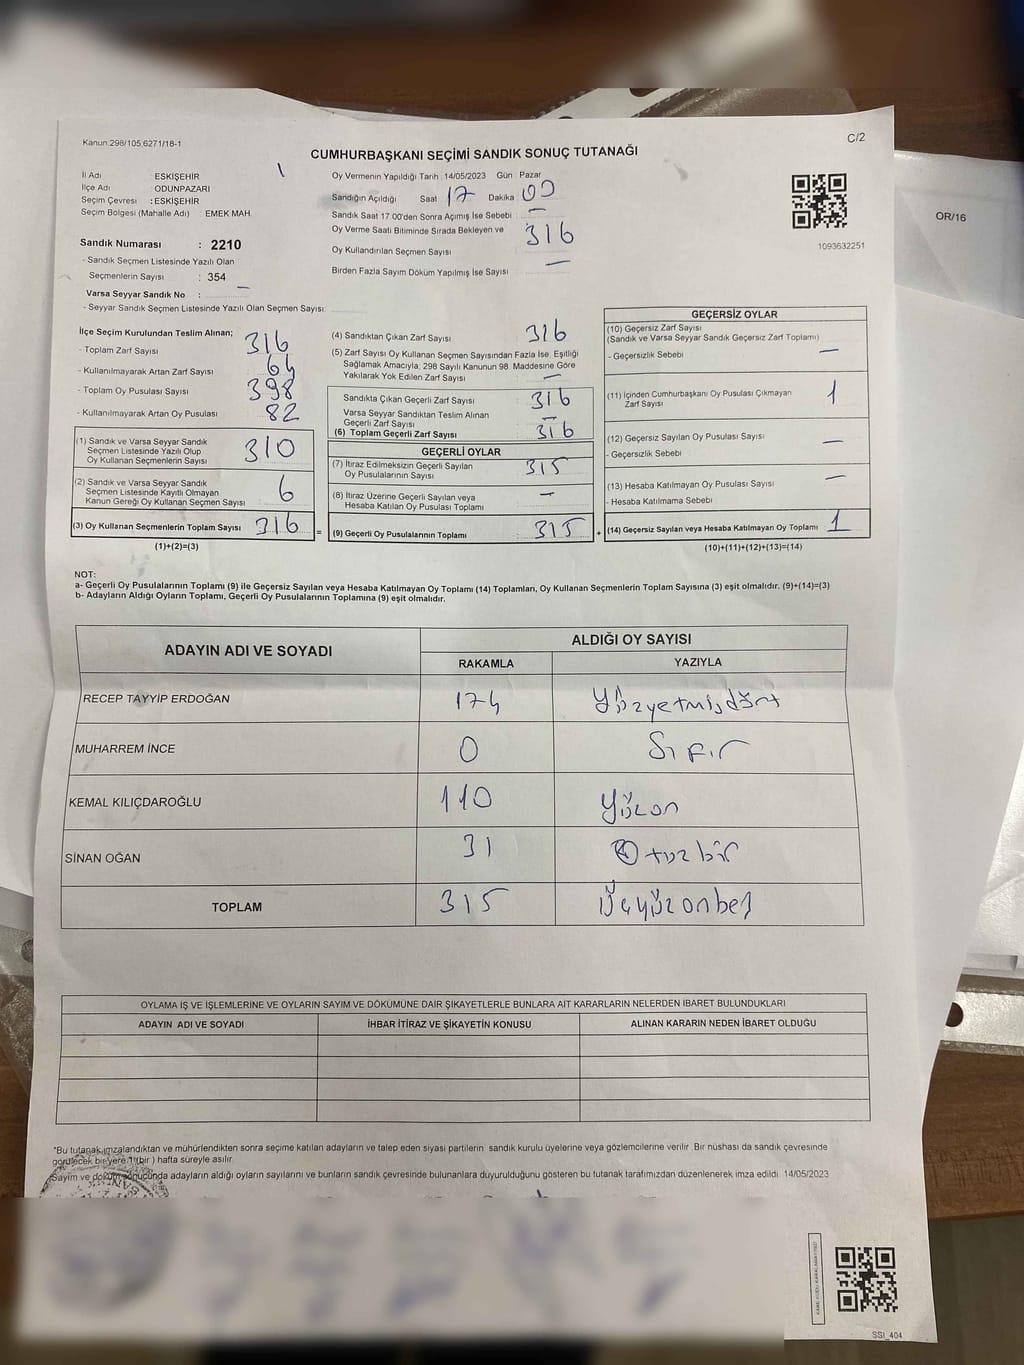 Kanun:298/105,6271/18-1
C/2
CUMHURBAŞKANI SEÇİMİ SANDIK SONUÇ TUTANAĞI
İl Adı : ESKİŞEHİR
İlçe Adı : ODUNPAZARI
Seçim Çevresi : ESKİŞEHİR
Seçim Bölgesi (Mahalle Adı) : EMEK MAH.
Sandık Numarası : 2210
- Sandık Seçmen Listesinde Yazılı Olan
Seçmenlerin Sayısı : 354
Varsa Seyyar Sandık No : —
- Seyyar Sandık Seçmen Listesinde Yazılı Olan Seçmen Sayısı:
Oy Vermenin Yapıldığı Tarih : 14/05/2023 Gün : Pazar
Sandığın Açıldığı Saat 17 Dakika 00
Sandık Saat 17.00'den Sonra Açımış İse Sebebi : —
Oy Verme Saati Bitiminde Sırada Bekleyen ve
Oy Kullandırılan Seçmen Sayısı 316
Birden Fazla Sayım Döküm Yapılmış İse Sayısı —
1093632251
OR/16
İlçe Seçim Kurulundan Teslim Alınan;
- Toplam Zarf Sayısı 316
- Kullanılmayarak Artan Zarf Sayısı 64
- Toplam Oy Pusulası Sayısı 398
- Kullanılmayarak Artan Oy Pusulası 82
(1) Sandık ve Varsa Seyyar Sandık
Seçmen Listesinde Yazılı Olup
Oy Kullanan Seçmenlerin Sayısı 310
(2) Sandık ve Varsa Seyyar Sandık
Seçmen Listesinde Kayıtlı Olmayan
Kanun Gereği Oy Kullanan Seçmen Sayısı 6
(3) Oy Kullanan Seçmenlerin Toplam Sayısı 316 =
(1)+(2)=(3)
(4) Sandıktan Çıkan Zarf Sayısı 316
(5) Zarf Sayısı Oy Kullanan Seçmen Sayısından Fazla İse, Eşitliği
Sağlamak Amacıyla; 298 Sayılı Kanunun 98. Maddesine Göre
Yakılarak Yok Edilen Zarf Sayısı —
Sandıkta Çıkan Geçerli Zarf Sayısı 316
Varsa Seyyar Sandıktan Teslim Alınan
Geçerli Zarf Sayısı —
(6) Toplam Geçerli Zarf Sayısı 316
GEÇERLİ OYLAR
(7) İtiraz Edilmeksizin Geçerli Sayılan
Oy Pusulalarının Sayısı 315
(8) İtiraz Üzerine Geçerli Sayılan veya
Hesaba Katılan Oy Pusulası Toplamı —
(9) Geçerli Oy Pusulalarının Toplamı 315 +
GEÇERSİZ OYLAR
(10) Geçersiz Zarf Sayısı
(Sandık ve Varsa Seyyar Sandık Geçersiz Zarf Toplamı)
- Geçersizlik Sebebi —
(11) İçinden Cumhurbaşkanı Oy Pusulası Çıkmayan
Zarf Sayısı 1
(12) Geçersiz Sayılan Oy Pusulası Sayısı —
- Geçersizlik Sebebi
(13) Hesaba Katılmayan Oy Pusulası Sayısı —
- Hesaba Katılmama Sebebi
(14) Geçersiz Sayılan veya Hesaba Katılmayan Oy Toplamı 1
(10)+(11)+(12)+(13)=(14)
NOT:
a- Geçerli Oy Pusulalarının Toplamı (9) ile Geçersiz Sayılan veya Hesaba Katılmayan Oy Toplamı (14) Toplamları, Oy Kullanan Seçmenlerin Toplam Sayısına (3) eşit olmalıdır. (9)+(14)=(3)
b- Adayların Aldığı Oyların Toplamı, Geçerli Oy Pusulalarının Toplamına (9) eşit olmalıdır.
ADAYIN ADI VE SOYADI
ALDIĞI OY SAYISI
RAKAMLA YAZIYLA
RECEP TAYYİP ERDOĞAN 174 Yüzyetmişdört
MUHARREM İNCE 0 Sıfır
KEMAL KILIÇDAROĞLU 110 Yüzon
SİNAN OĞAN 31 Otuzbir
TOPLAM 315 Üçyüzonbeş
OYLAMA İŞ VE İŞLEMLERİNE VE OYLARIN SAYIM VE DÖKÜMÜNE DAİR ŞİKAYETLERLE BUNLARA AİT KARARLARIN NELERDEN İBARET BULUNDUKLARI
ADAYIN ADI VE SOYADI İHBAR İTİRAZ VE ŞİKAYETİN KONUSU ALINAN KARARIN NEDEN İBARET OLDUĞU
*Bu tutanak imzalandıktan ve mühürlendikten sonra seçime katılan adayların ve talep eden siyasi partilerin sandık kurulu üyelerine veya gözlemcilerine verilir. Bir nüshası da sandık çevresinde
görülecek bir yere 1(bir ) hafta süreyle asılır.
Sayım ve döküm sonucunda adayların aldığı oyların sayılarını ve bunların sandık çevresinde bulunanlara duyurulduğunu gösteren bu tutanak tarafımızdan düzenlenerek imza edildi. 14/05/2023
SSI_404